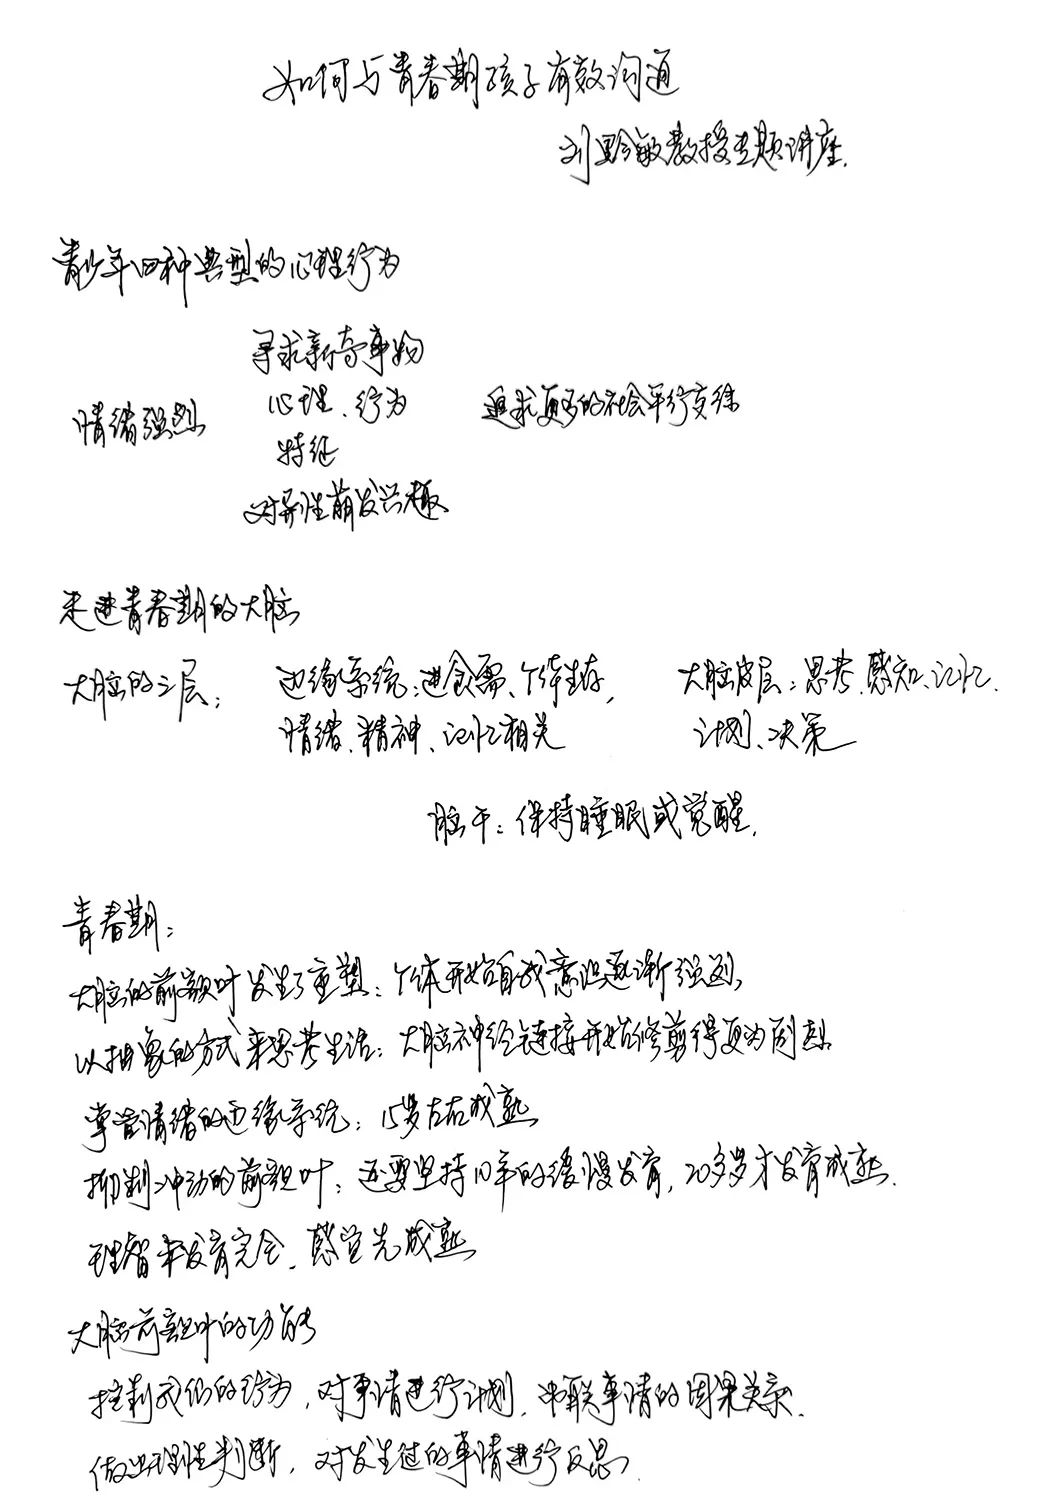 如何与青春期孩子有效沟通
刘黔敏教授专题讲座.
青少年四种典型的心理行为
寻求新奇事物
情绪强烈 心理、行为 追求更多的社会平行交往
特征
对异性萌发兴趣
走进青春期的大脑
大脑的三层: 边缘系统:进食需、个体生存, 大脑皮层:思考、感知、记忆.
情绪、精神、记忆相关 计划、决策
脑干:保持睡眠或觉醒.
青春期:
大脑的前额叶发生了重塑:个体开始自我意识逐渐强烈,
以抽象的方式来思考生活:大脑神经链接开始修剪得更为周
掌管情绪的边缘系统:15岁左右成熟
抑制冲动的前额叶:还要坚持10年的缓慢发育,20多岁才发育成熟.
理智未发育完全.感官先成熟
大脑前额叶的功能
控制我们的行为,对事情进行计划,串联事情的因果关系.
做出理性判断,对发生过的事情进行反思.